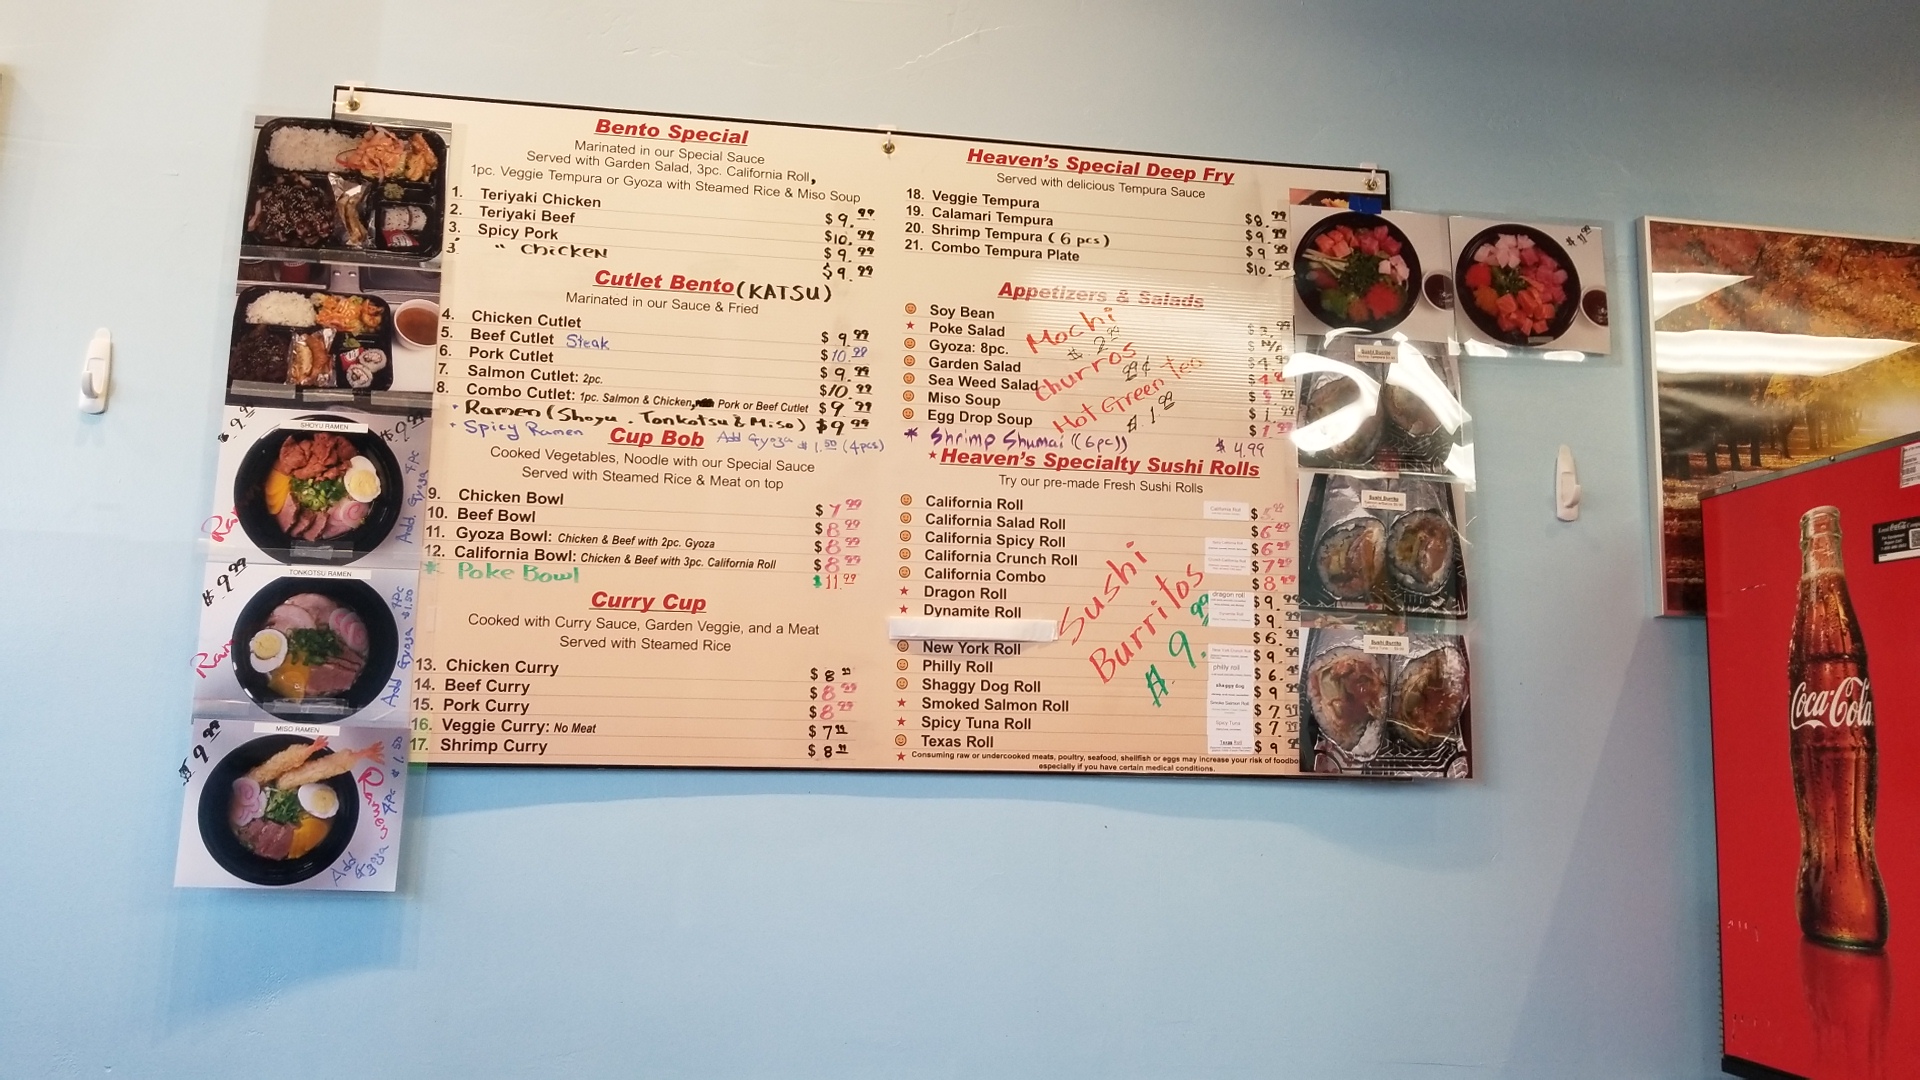 Bento Special
Marinated in our Special Sauce
Served with Garden Salad, 3pc. California Roll,
1pc. Veggie Tempura or Gyoza with Steamed Rice & Miso Soup
1. Teriyaki Chicken $9.99
2. Teriyaki Beef $10.99
3. Spicy Pork $9.99
3. " Chicken $9.99
Cutlet Bento (KATSU)
Marinated in our Sauce & Fried
4. Chicken Cutlet $9.99
5. Beef Cutlet Steak $10.99
6. Pork Cutlet $9.99
7. Salmon Cutlet: 2pc. $10.99
8. Combo Cutlet: 1pc. Salmon & Chicken, Pork or Beef Cutlet $9.99
Ramen (Shoyu. Tonkotsu & Miso) $9.99
Spicy Ramen Add Gyoza $1.50 (4pcs)
Cup Bob
Cooked Vegetables, Noodle with our Special Sauce
Served with Steamed Rice & Meat on top
9. Chicken Bowl $7.99
10. Beef Bowl $8.99
11. Gyoza Bowl: Chicken & Beef with 2pc. Gyoza $8.99
12. California Bowl: Chicken & Beef with 3pc. California Roll $8.99
* Poke Bowl $11.99
Curry Cup
Cooked with Curry Sauce, Garden Veggie, and a Meat
Served with Steamed Rice
13. Chicken Curry $8
14. Beef Curry $8.99
15. Pork Curry $8.99
16. Veggie Curry: No Meat $7
17. Shrimp Curry $8
Heaven's Special Deep Fry
Served with delicious Tempura Sauce
18. Veggie Tempura
19. Calamari Tempura $9.99
20. Shrimp Tempura (6 pcs) $9.99
21. Combo Tempura Plate $10.99
Appetizers & Salads
Soy Bean
Poke Salad N/A
Gyoza: 8pc.
Garden Salad
Sea Weed Salad
Miso Soup
Egg Drop Soup
Mochi
Churros
99¢
Hot Green Tea
$1.99
* Shrimp Shumai (6pc) $4.99
Heaven's Specialty Sushi Rolls
Try our pre-made Fresh Sushi Rolls
California Roll
California Salad Roll $6.49
California Spicy Roll
California Crunch Roll
California Combo
Dragon Roll
Dynamite Roll
New York Roll
Philly Roll
Shaggy Dog Roll
Smoked Salmon Roll
Spicy Tuna Roll
Texas Roll
Sushi
Burritos
$9.99
California Roll
dragon roll
Dynamite Roll
philly roll
shaggy dog
Smoke Salmon Roll
Spicy Tuna
Texas Roll
Consuming raw or undercooked meats, poultry, seafood, shellfish or eggs may increase your risk of foodbo
especially if you have certain medical conditions.
$9.99
SHOYU RAMEN
$9.99
Add Gyoza 4pc
$9.99
TONKOTSU RAMEN
Add Gyoza $1.50
4pc
$9.99
MISO RAMEN
Ramen
Add Gyoza 4pc $1.50
Sushi Burrito
Sushi Burrito
Sushi Burrito
Coca-Cola